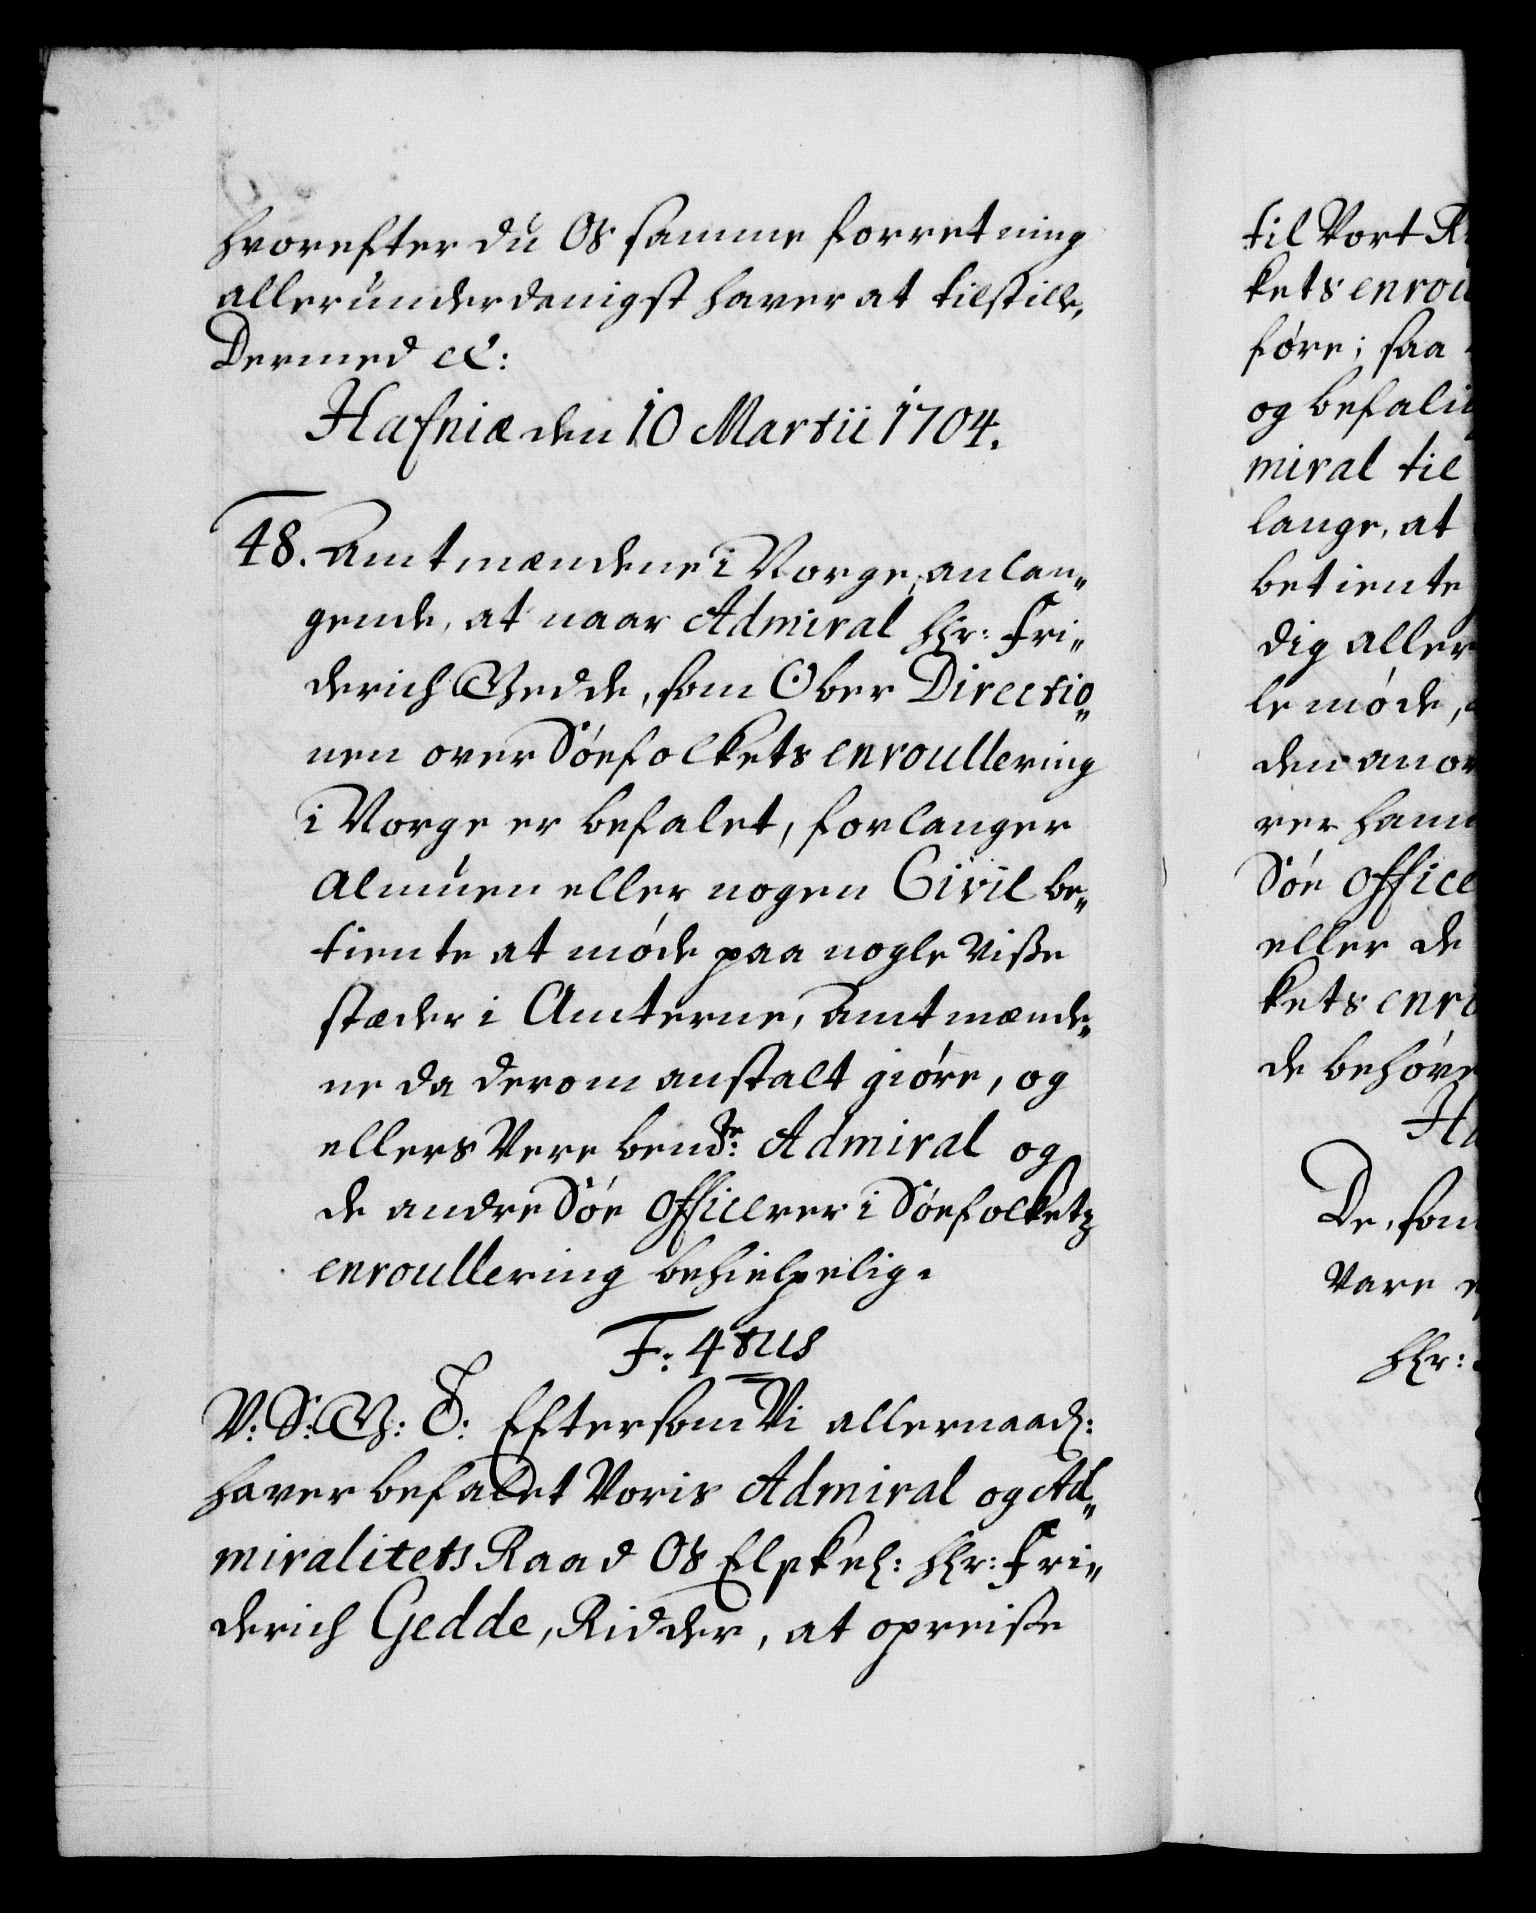 hvorefter du Os samme forretning
allerunderdanigst haver at tilstille,
Dermed etc:
Hafniæ den 10 Martii 1704.
48. Amtmændene i Norge, anlan„
gende, at naar Admiral Hr: Fri„
derich Gedde, som Ober Directio„
nen over Søefolkets enroullering
i Norge er befalet, forlanger
Almuen eller nogen Civil be„
tiente at møde paa nogle visse
stæder i Amterne, Amtmænde„
ne da derom anstalt giøre, og
ellers Vere bemte: Admiral og
de andre Søe Officerer i Søefolketz
enroullering behielpelig.
F: 4tus
V: S: G: T: Eftersom Vi allernaadh:
haver befalet Voris Admiral og Ad„
miralitets Raad Os Elskel: Hr: Fri„
derich Gedde, Ridder, at opreise
til Vort R
kets enrou
føre; saa
og befali
miral til
lange, at
betiente
dig aller
le møde,
den anor
rer ham
Søe Office
eller de
kets enro
de behøve
Ha
De, som
Vare
Hr: